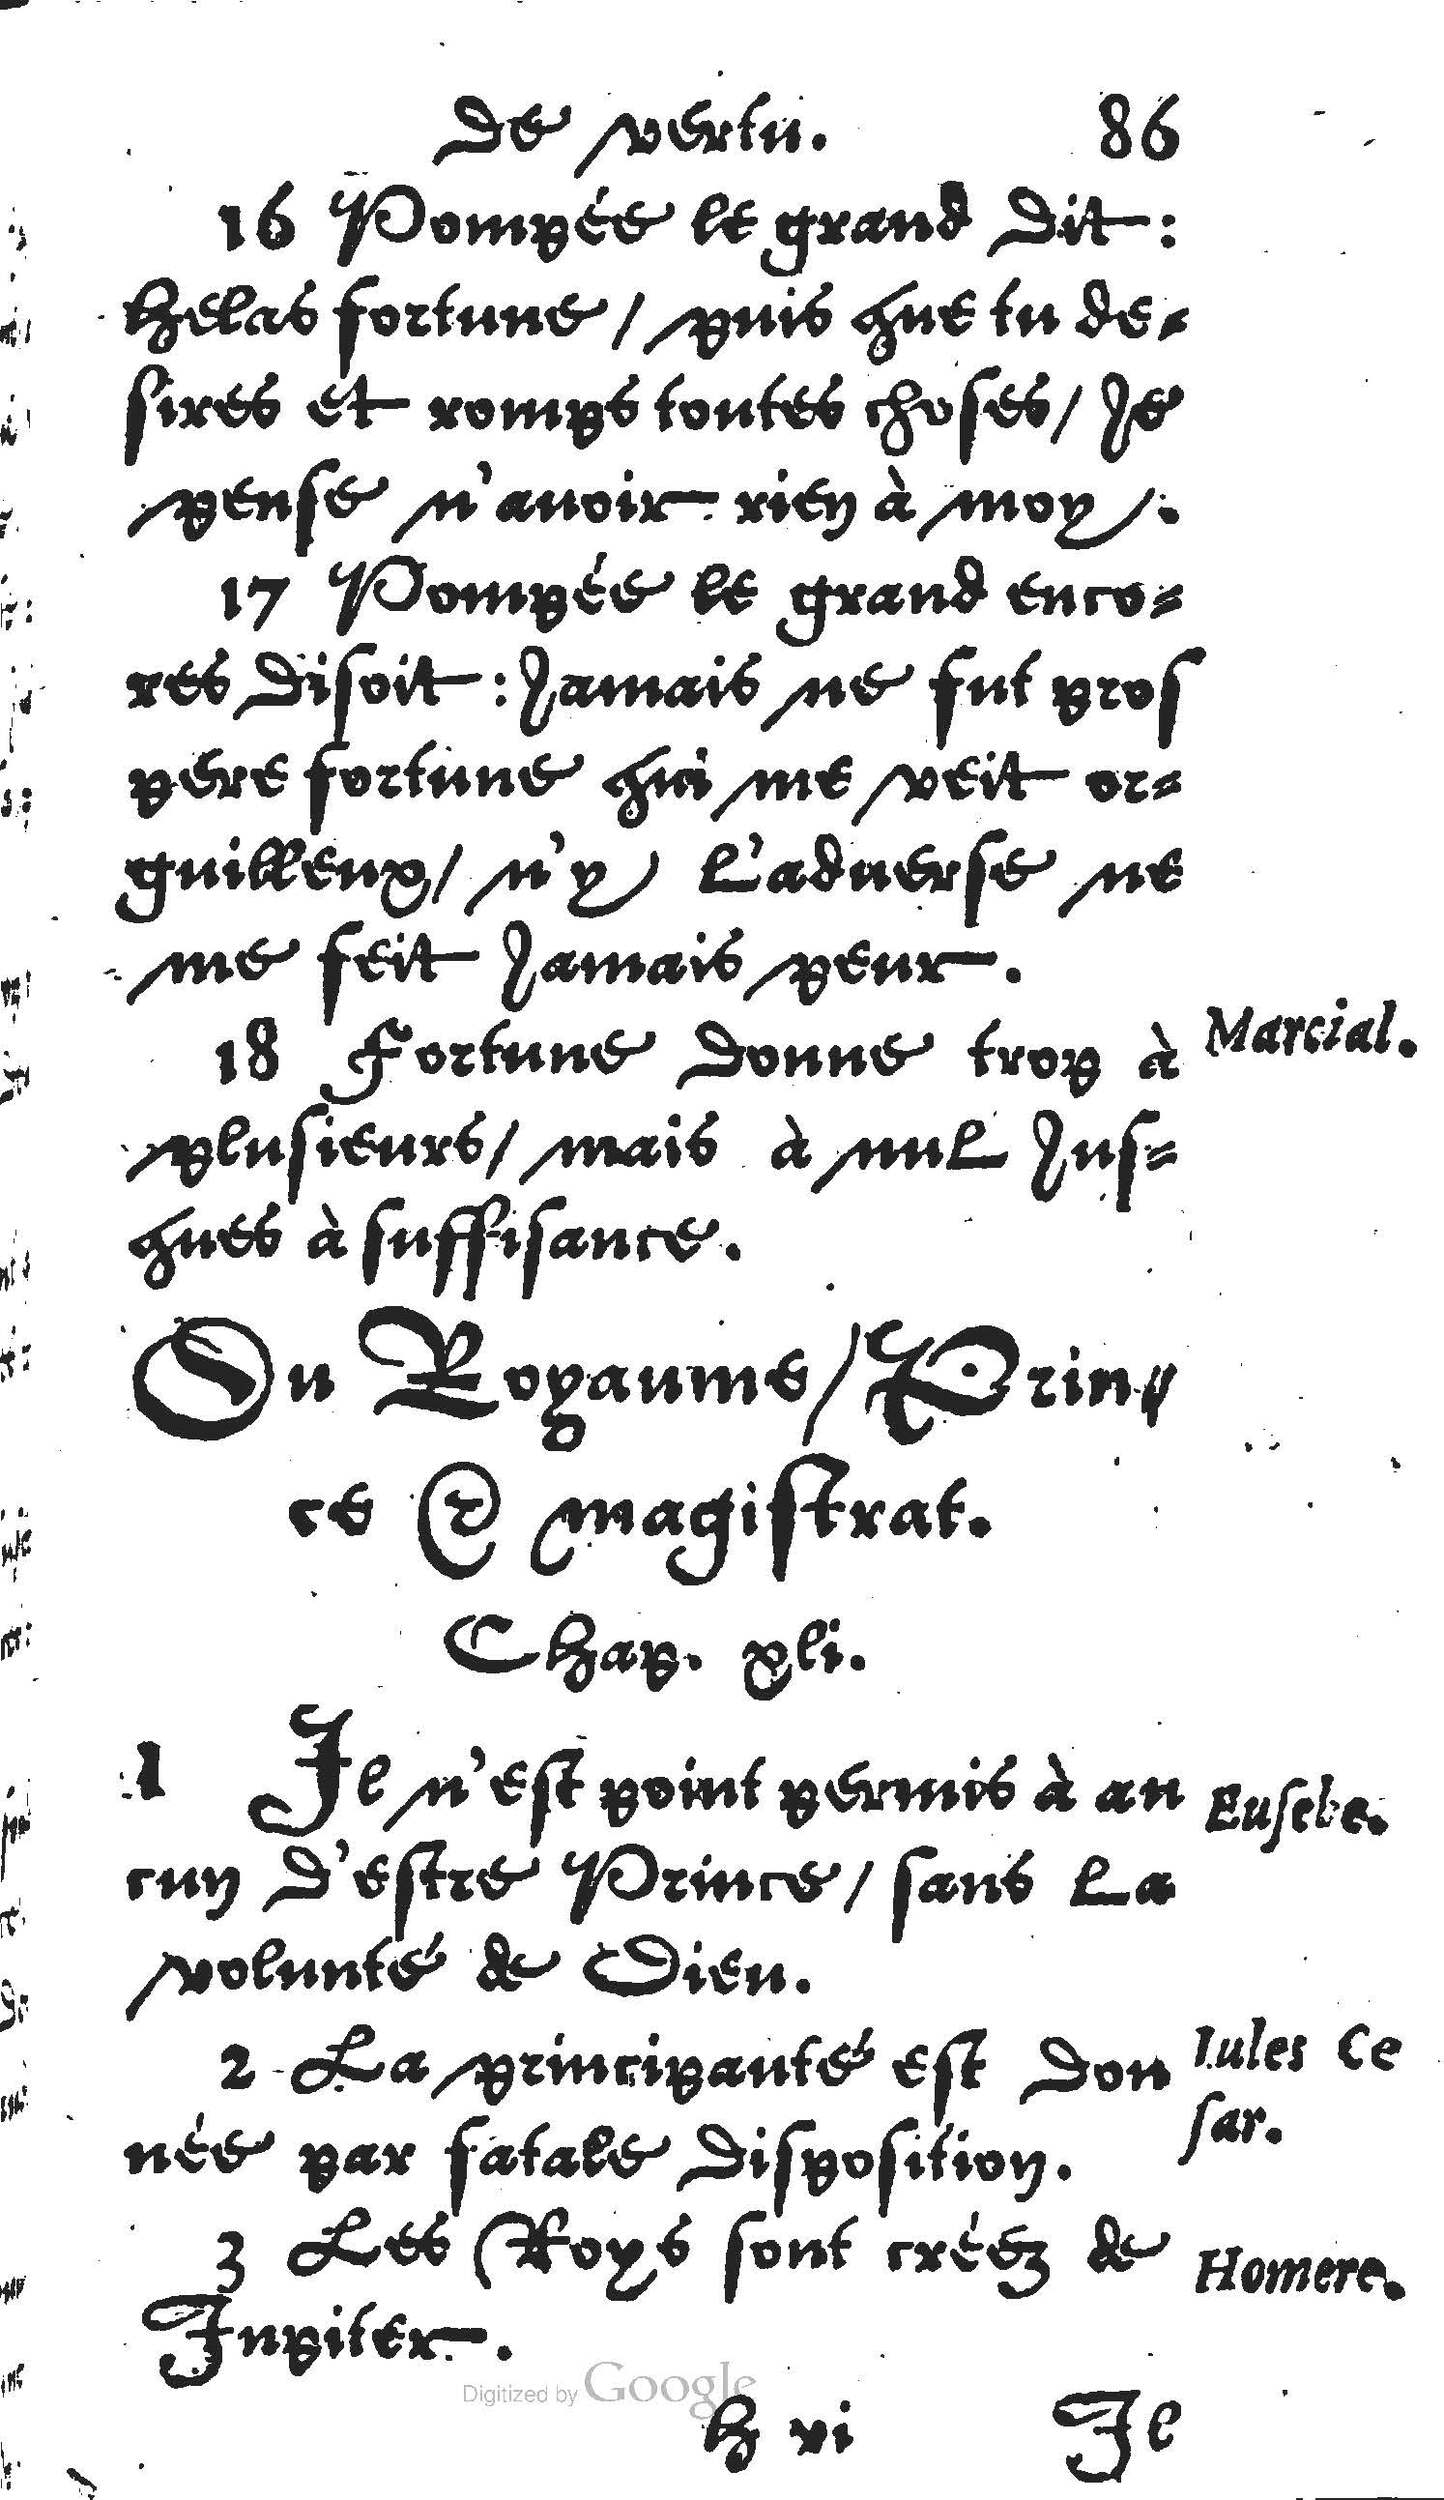 de vertu. 86
16 Pompée le grand dit:
helas fortune/ puis que tu de-
sires et romps toutes choses/ Je
pense n'auoir rien à moy.
17 Pompée le grand enco-
res disoit: Jamais ne fut pros
pere fortune qui me veit or-
guilleux/ n'y l'aduerse ne
me feit Jamais peur.
18 Fortune donne trop à
Marcial.
plusieurs/ mais à nul Jus-
ques à suffisance.
Du Royaume/ Prin-
ce & magistrat.
Chap. xli.
1 Il n'est point permis à au
Eusebe.
cun d'estre Prince/ sans la
volunté de Dieu.
2 La principauté est don
Iules Ce
sar.
née par fatale disposition.
3 Les Roys sont créez de
Homere.
Jupiter.
Digitized by Google
h vi Il